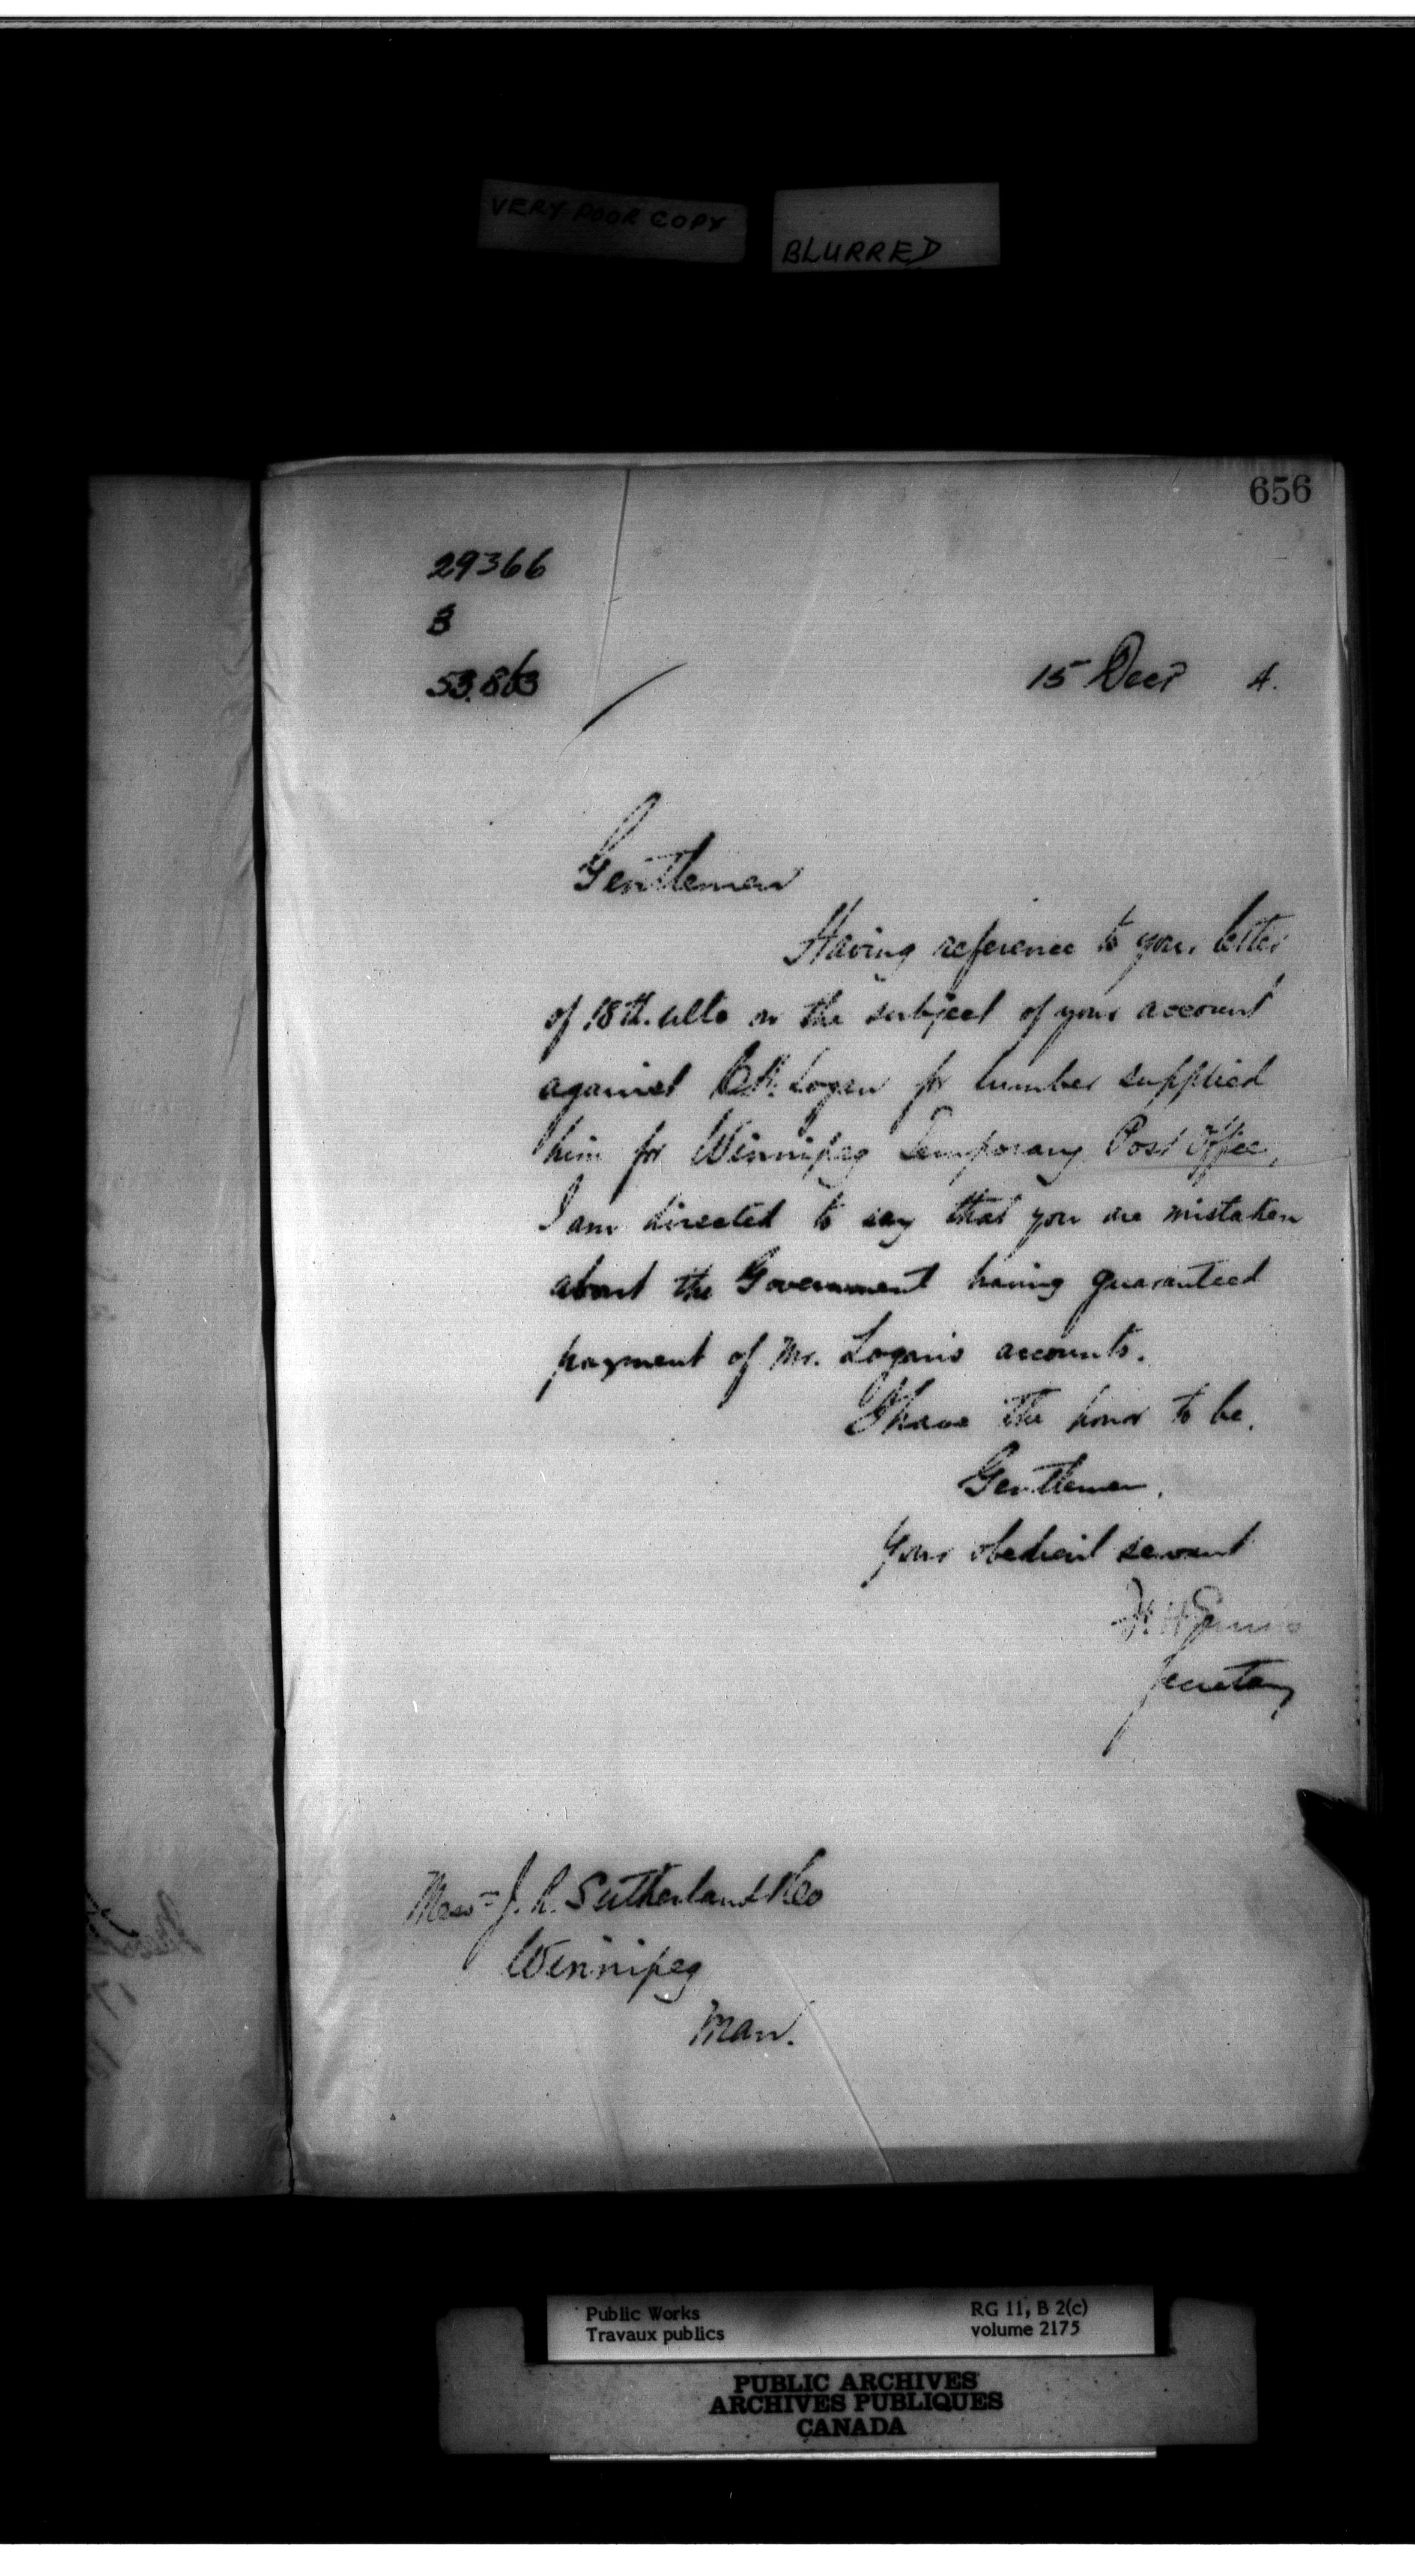 VERY POOR COPY
BLURRED
656
29366
B
53.863
15 Decr 4.
Gentlemen
Having reference to your letter
of 18th. ulto on the subject of your account
against Logan for lumber supplied
him for Winnipeg Temporary Post Office,
I am directed to say that you are mistaken
about the Government having guaranteed
payment of Mr. Logan's accounts.
I have the honor to be,
Gentlemen,
Your obedient servant
Secretary
Messrs J. R. Sutherland & Co
Winnipeg
Man.
Public Works
Travaux publics
RG 11, B 2(c)
volume 2175
PUBLIC ARCHIVES
ARCHIVES PUBLIQUES
CANADA